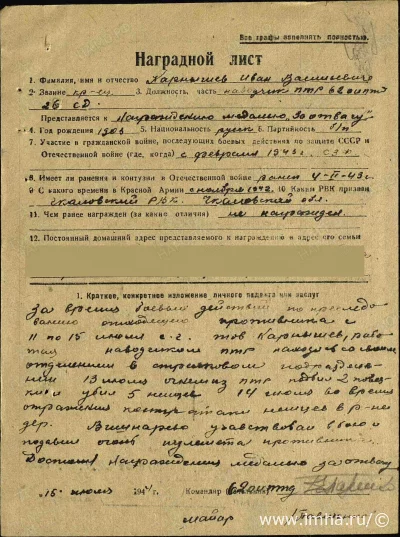 Все графы заполнять полностью.
Наградной лист
1. Фамилия, имя и отчество Карнышев Иван Васильевич
2. Звание кр-ц 3. Должность, часть наводчик ПТР 62 оиптд
26 СД.
Представляется к награждению медалью „За отвагу"
4. Год рождения 1903 5. Национальность русск 6. Партийность б/п
7. Участие в гражданской войне, последующих боевых действиях по защите СССР и
Отечественной войне (где, когда) с февраля 1943 г. СЗФ
8. Имеет ли ранения и контузии в Отечественной войне ранен 4-II-43 г.
9. С какого времени в Красной Армии с ноября 1942. 10. Каким РВК призван
Чкаловский РВК Чкаловской обл.
11. Чем ранее награжден (за какие отличия) не награжден
12. Постоянный домашний адрес представляемого к награждению и адрес его семьи
1. Краткое, конкретное изложение личного подвига или заслуг
За время боевых действий по преследованию
отходящего противника с
11 по 15 июля с.г. тов Карнышев, работая
наводчиком ПТР находился со своим
отделением в стрелковом подразделении
13 июля огнем из ПТР подбил 2 повозки
и убил 5 немцев 14 июля во время
отражения контратаки немцев в р-не
дер. участвовал в бою и
подавил очень пулемета противника.
Достоин награждения медалью за отвагу
15 июля 1944 г. Командир 62 оиптд
майор
© www.imha.ru/ ©